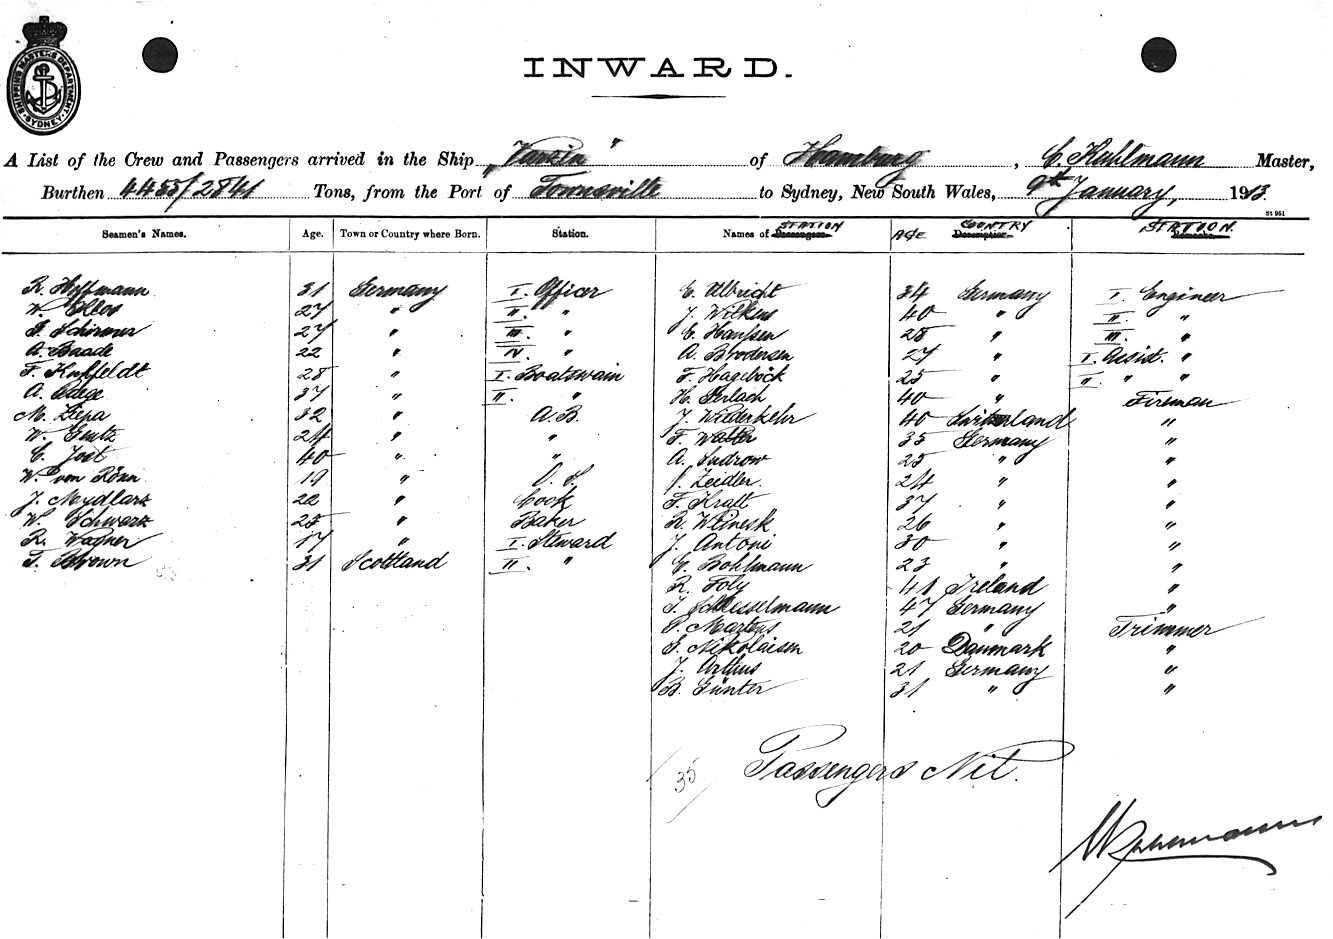 SHIPPING MASTERS DEPARTMENT
SYDNEY
INWARD.
A List of the Crew and Passengers arrived in the Ship „Varzin" of Hamburg, C. Kahlmann Master,
Burthen 4455/2841 Tons, from the Port of Townsville to Sydney, New South Wales, 9th January, 1913.
St 951
Seamen's Names. Age. Town or Country where Born. Station. Names of STATION AGE COUNTRY STATION.
R. Hoffmann 31 Germany I. Officer
W. 27 " II. "
Schirmer 27 " III. "
A. Baade 22 " IV. "
F. 28 " I. Boatswain
A. 37 " II. "
M. Ziepa 32 " A.B.
W. Gentz 24 " "
C. Jost 40 " "
W. von Rönn 19 " O.S.
J. Mydlarz 22 " Cook
W. Schwarz 25 " Baker
R. Wagner 17 " I. Steward
T. Brown 31 Scottland II. "
C. Ulbricht 34 Germany I. Engineer
J. Wilkus 40 " II. "
C. Hanssen 28 " III. "
A. Brodersen 27 " I. Assist. "
F. Hageböck 25 " II. " "
H. Gerlach 40 " Fireman
J. Wiederkehr 40 Switzerland "
F. Walter 35 Germany "
A. Sudrow 25 " "
Zeidler 24 " "
F. Kratt 37 " "
R. 26 " "
J. Antoni 30 " "
Bohlmann 23 " "
R. Foly 41 Ireland "
Schlesselmann 47 Germany "
P. Martens 21 " Trimmer
Nikolaisen 20 Danmark "
J. Arthus 21 Germany "
B. Günter 31 " "
35
Passengers Nil.